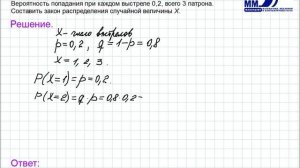 Вероятность попадания при каждом выстреле 0,2, всего 3 патрона.
Составить закон распределения случайной величины X.
ММ
Решение.
X - число выстрелов
p = 0,2, q = 1-p = 0,8
X = 1, 2, 3.
P(X=1) = p = 0,2
P(X=2) = q·p = 0,8·0,2 =
Ответ: